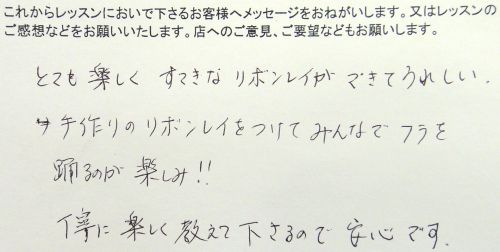 これからレッスンにおいで下さるお客様へメッセージをおねがいします。又はレッスンの
ご感想などをお願いいたします。店へのご意見、ご要望などもお願いします。
とても楽しく すてきな リボンレイが できてうれしい.
手作りのリボンレイをつけて みんなで フラを
踊るのが 楽しみ!!
丁寧に 楽しく 教えて下さるので 安心です.